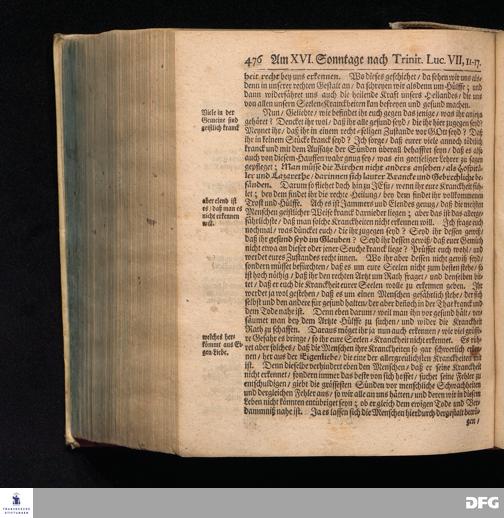 476 Am XVI. Sonntage nach Trinit. Luc. VII, 11-17.
heit recht bey uns erkennen. Wo dieses geschiehet / da sehen wir uns als-
denn in unserer rechten Gestalt an / da schreyen wir alsdenn um Hülffe; und
dann widerfähret uns auch die heilende Krafft unsers Heilandes / die uns
von allen unsern Seelen-Kranckheiten kan befreyen und gesund machen.
Viele in der
Gemeine sind
geistlich kranck
Nun / Geliebte / wie befindet ihr euch gegen das jenige / was ihr anietzo
gehöret? Dencket ihr wol / daß ihr alle gesund seyd / die ihr hier zugegen seyd?
Meynet ihr / daß ihr in einem recht-seligen Zustande vor GOtt seyd? Daß
ihr in keinem Stücke kranck seyd? Ich sorge / daß eurer viele annoch tödtlich
kranck und mit dem Aussatze der Sünden überall behafftet seyn / daß es also
auch von diesem Hauffen wahr gnug sey / was ein gottseliger Lehrer zu sagen
gepfleget: Man müsse die Kirchen nicht anders ansehen / als Hospitä-
ler und Lazarethe / darinnen sich laurer Krancke und Gebrechliche be-
fänden. Darum so fliehet doch hin zu JEsu / wenn ihr eure Kranckheit füh-
let; bey dem findet ihr die rechte Heilung / bey dem findet ihr vollkommenen
aber elend ist
es / daß man es
nicht erkennen
will.
Trost und Hülffe. Ach es ist Jammers und Elendes genug / daß die meisten
Menschen geistlicher Weise kranck darnieder liegen; aber das ist das allerge-
fährlichste / daß man solche Kranckheiten nicht erkennen will. Ich frage euch
nochmal / was düncket euch / die ihr zugegen seyd? Seyd ihr dessen gewiß /
daß ihr gesund seyd im Glauben? Seyd ihr dessen gewiß / daß euer Gemüth
nicht etwa an dieser oder jener Seuche kranck liege? Prüfet euch wohl / und
werdet eures Zustandes recht innen. Wo ihr aber dessen nicht gewiß seyd /
sondern müsset befürchten / daß es um eure Seelen nicht zum besten stehe / so
ist hoch nöthig / daß ihr den rechten Artzt um Rath fraget / und denselben bit-
tet / daß er euch die Kranckheit eurer Seelen wolle zu erkennen geben. Ihr
werdet ja wol gestehen / daß es um einen Menschen gefährlich stehe / der sich
selbst und den andere für gesund halten / der aber dennoch in der That kranck und
dem Tode nahe ist. Denn eben darum / weil man ihn vor gesund hält / ver-
säumet man bey dem Artzte Hülffe zu suchen / und wider die Kranckheit
Rath zu schaffen. Daraus möget ihr ja nun auch erkennen / wie viel grössere
Gefahr es bringe / so ihr eure Seelen-Kranckheit nicht erkennet. Es rüh-
welches her-
kommt aus Ei-
gen-Liebe.
ret aber solches / daß die Menschen ihre Kranckheiten so gar schwerlich erken-
nen / her aus der Eigenliebe / die eine der allergreulichsten Kranckheiten mit
ist. Denn dieselbe verhindert eben den Menschen / daß er seine Kranckheit
nicht erkennet / sondern immer das beste von sich hoffet / suchet seine Fehler zu
entschuldigen / giebt die grössesten Sünden vor menschliche Schwachheiten
und dergleichen Fehler aus / so wir alle an uns hätten / und deren wir in diesem
Leben nicht könnten entübriget seyn; ob er gleich dem ewigen Tode und Ver-
dammniß nahe ist. Ja es lassen sich die Menschen hierdurch dergestalt betrü-
gen /
FRANCKESCHE
STIFTUNGEN
DFG